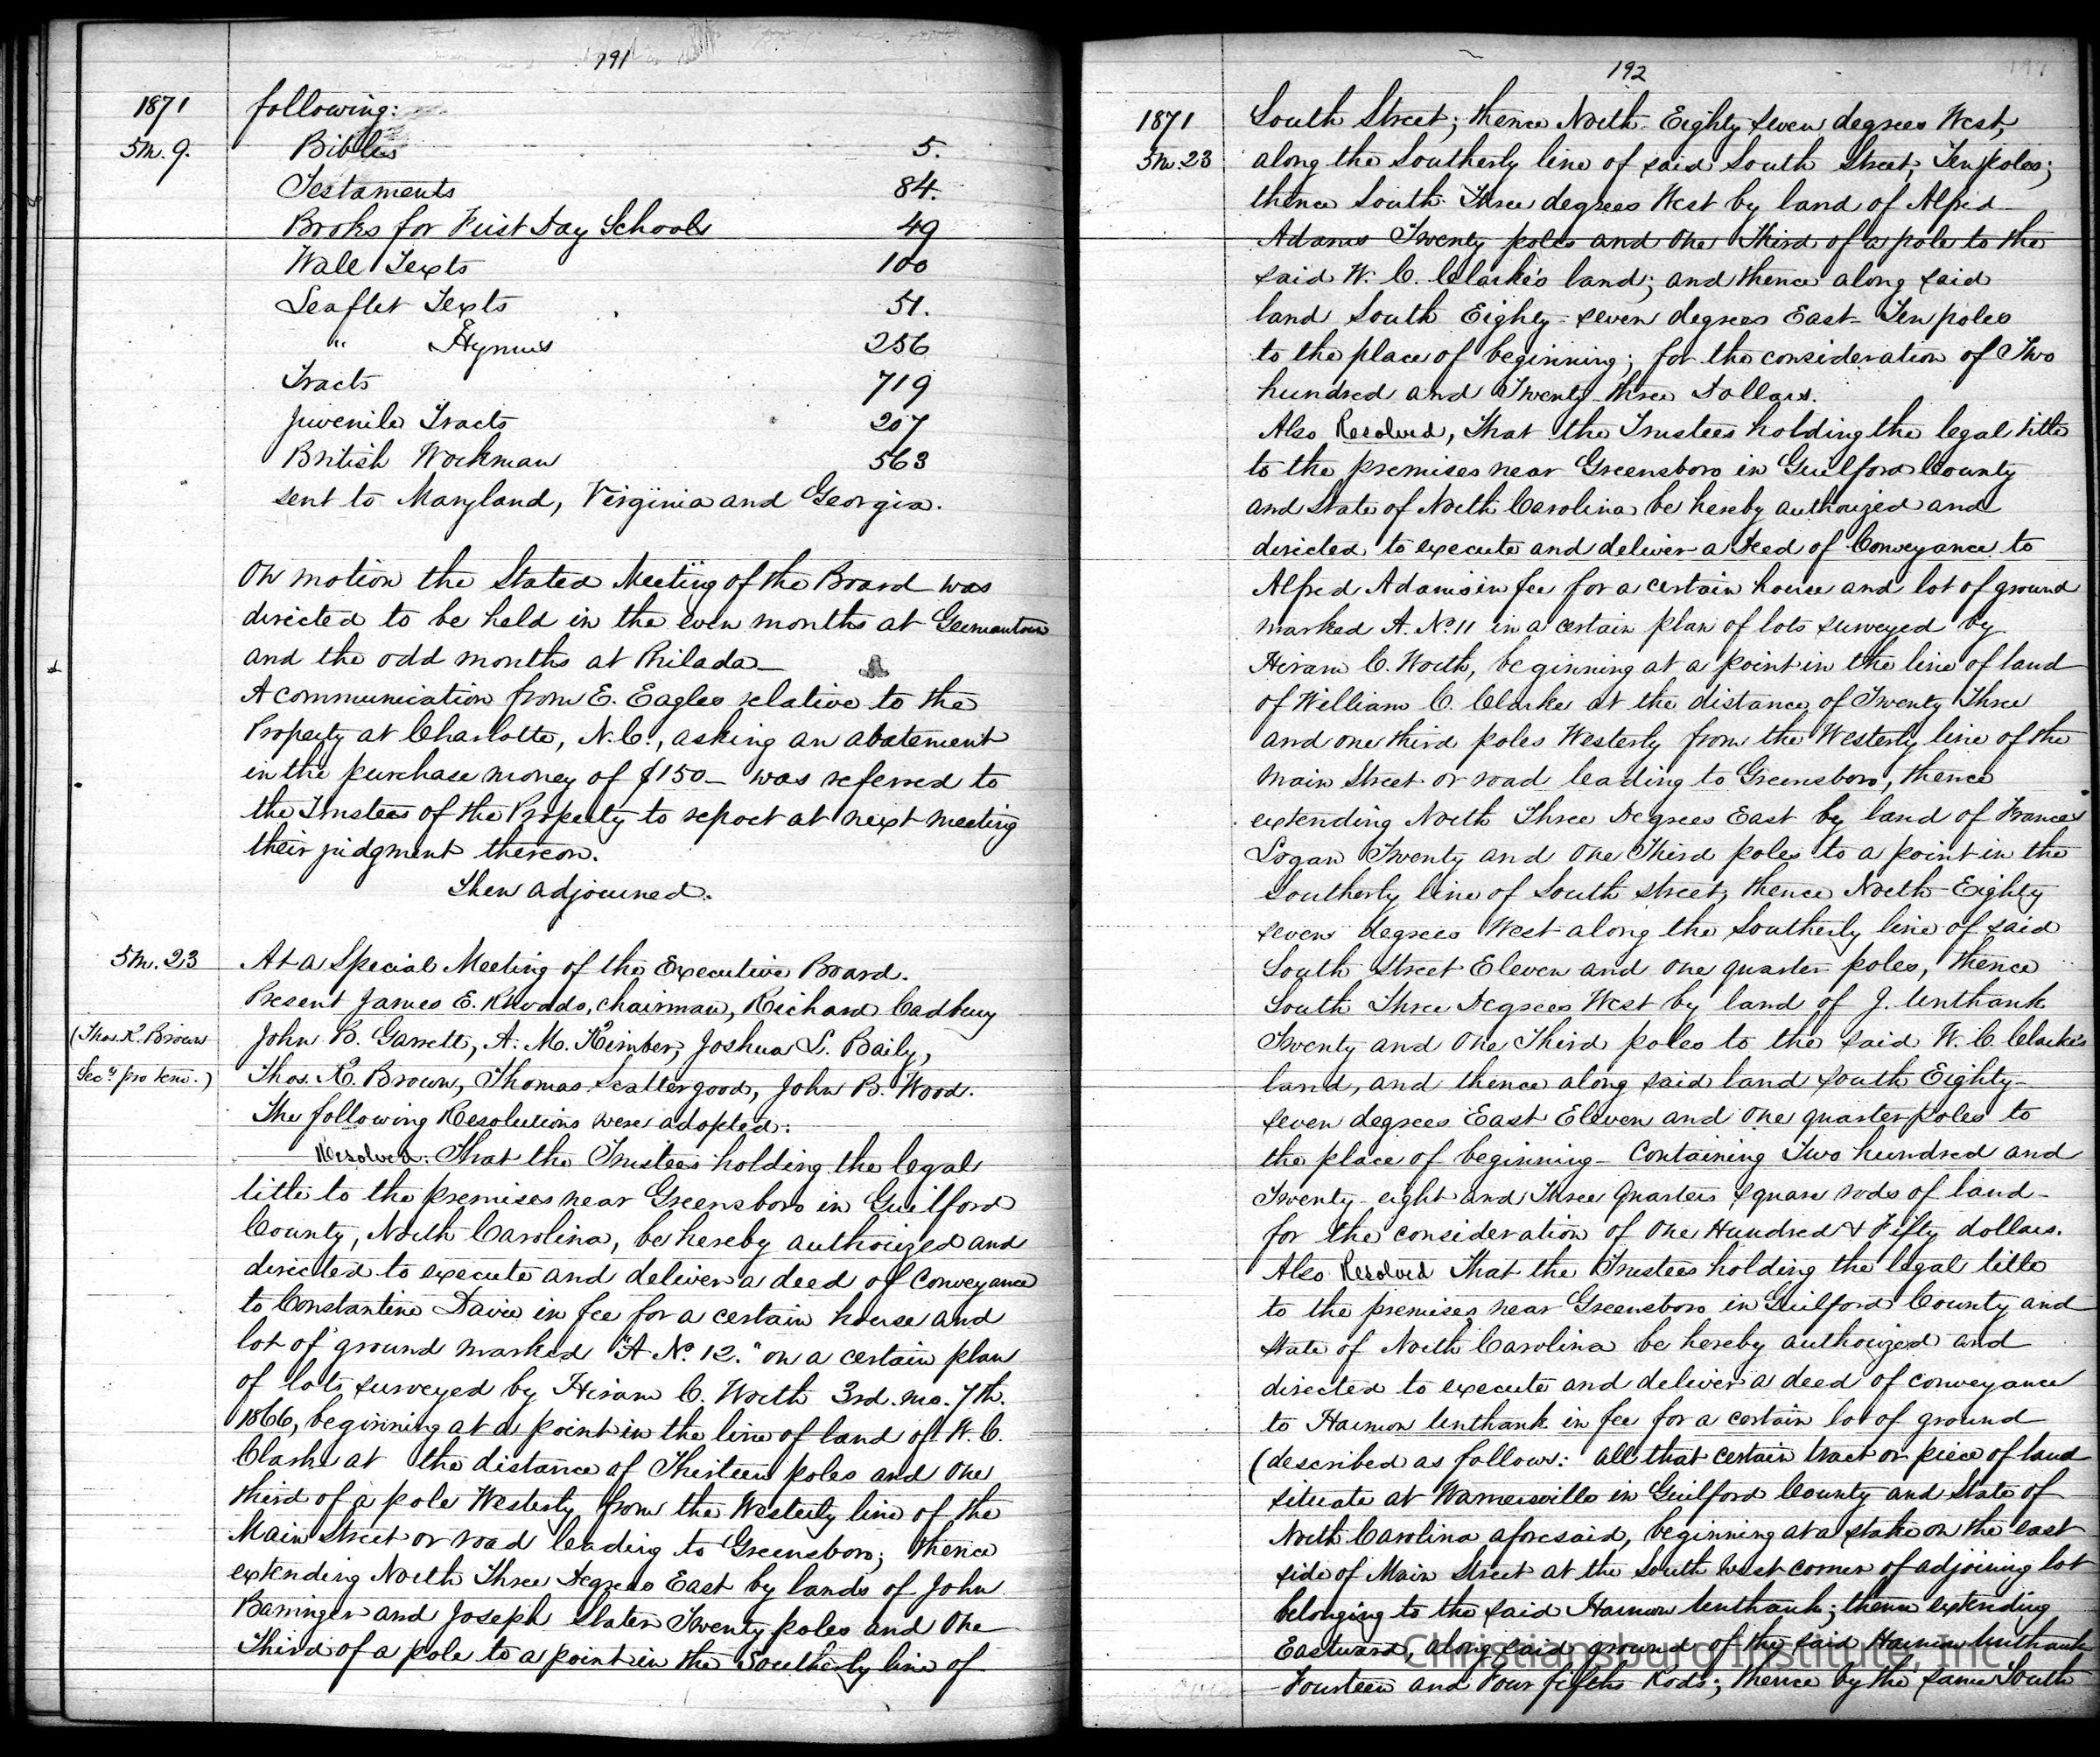 191
1871 following:
5m. 9. Bibles 5.
Testaments 84.
Books for First Day Schools 49
Wall Texts 100
Leaflet Texts 51.
" Hymns 256
Tracts 719
Juvenile Tracts 207
British Workman 563
sent to Maryland, Virginia and Georgia.
On motion the Stated Meeting of the Board was
directed to be held in the even months at Germantown
and the odd months at Philada—
A communication from E. Eagles relative to the
Property at Charlotte, N.C., asking an abatement
in the purchase money of $150— was referred to
the Trustees of the Property to report at next meeting
their judgment thereon.
Then adjourned.
5m. 23 At a Special Meeting of the Executive Board.
Present James E. Rhoads, chairman, Richard Cadbury
(Thos. K. Brown John B. Garrett, A. M. Kimber, Joshua L. Baily,
Secy. pro tem.) Thos. K. Brown, Thomas Scattergood, John B. Wood.
The following Resolutions were adopted:
Resolved: That the Trustees holding the legal
title to the premises near Greensboro in Guilford
County, North Carolina, be hereby authorized and
directed to execute and deliver a deed of Conveyance
to Constantine Davie in fee for a certain house and
lot of ground marked "A No. 12." on a certain plan
of lots surveyed by Hiram C. Worth 3rd. mo. 7th.
1866, beginning at a point in the line of land of W. C.
Clarke at the distance of Thirteen poles and one
third of a pole Westerly from the Westerly line of the
Main Street or road leading to Greensboro; thence
extending North Three Degrees East by lands of John
Barringer and Joseph Slater Twenty poles and One
Third of a pole to a point in the Southerly line of
192
1871 South Street; thence North Eighty seven degrees West,
5m. 23 along the Southerly line of said South Street, Ten poles;
thence South Three degrees West by land of Alfred
Adams Twenty poles and One Third of a pole to the
said W. C. Clarke's land; and thence along said
land South Eighty-seven degrees East Ten poles
to the place of beginning; for the consideration of Two
hundred and Twenty-three Dollars.
Also Resolved, That the Trustees holding the legal title
to the premises near Greensboro in Guilford County
and State of North Carolina be hereby authorized and
directed to execute and deliver a Deed of Conveyance to
Alfred Adams in fee for a certain house and lot of ground
marked A. No. 11 in a certain plan of lots surveyed by
Hiram C. Worth, beginning at a point in the line of land
of William C. Clarke at the distance of Twenty Three
and one third poles Westerly from the Westerly line of the
Main Street or road leading to Greensboro, thence
extending North Three Degrees East by land of Frances
Logan Twenty and One Third poles to a point in the
Southerly line of South street, thence North Eighty
seven degrees West along the Southerly line of said
South Street Eleven and one quarter poles, thence
South Three Degrees West by land of J. Unthank
Twenty and One Third poles to the said W. C. Clarke's
land, and thence along said land South Eighty-
seven degrees East Eleven and one quarter poles to
the place of beginning— Containing Two hundred and
Twenty-eight and Three Quarters square rods of land—
for the consideration of One Hundred & Fifty dollars.
Also Resolved That the Trustees holding the legal title
to the premises near Greensboro in Guilford County and
State of North Carolina be hereby authorized and
directed to execute and deliver a deed of conveyance
to Harmon Unthank in fee for a certain lot of ground
(described as follows: All that certain tract or piece of land
situate at Warnersville in Guilford County and State of
North Carolina aforesaid, beginning at a stake on the east
side of Main Street at the South west corner of adjoining lot
belonging to the said Harmon Unthank; thence extending
Eastward, along said ground of the said Harmon Unthank
Fourteen and Four fifths Rods; thence by the same South
Christiansburg Institute, Inc.